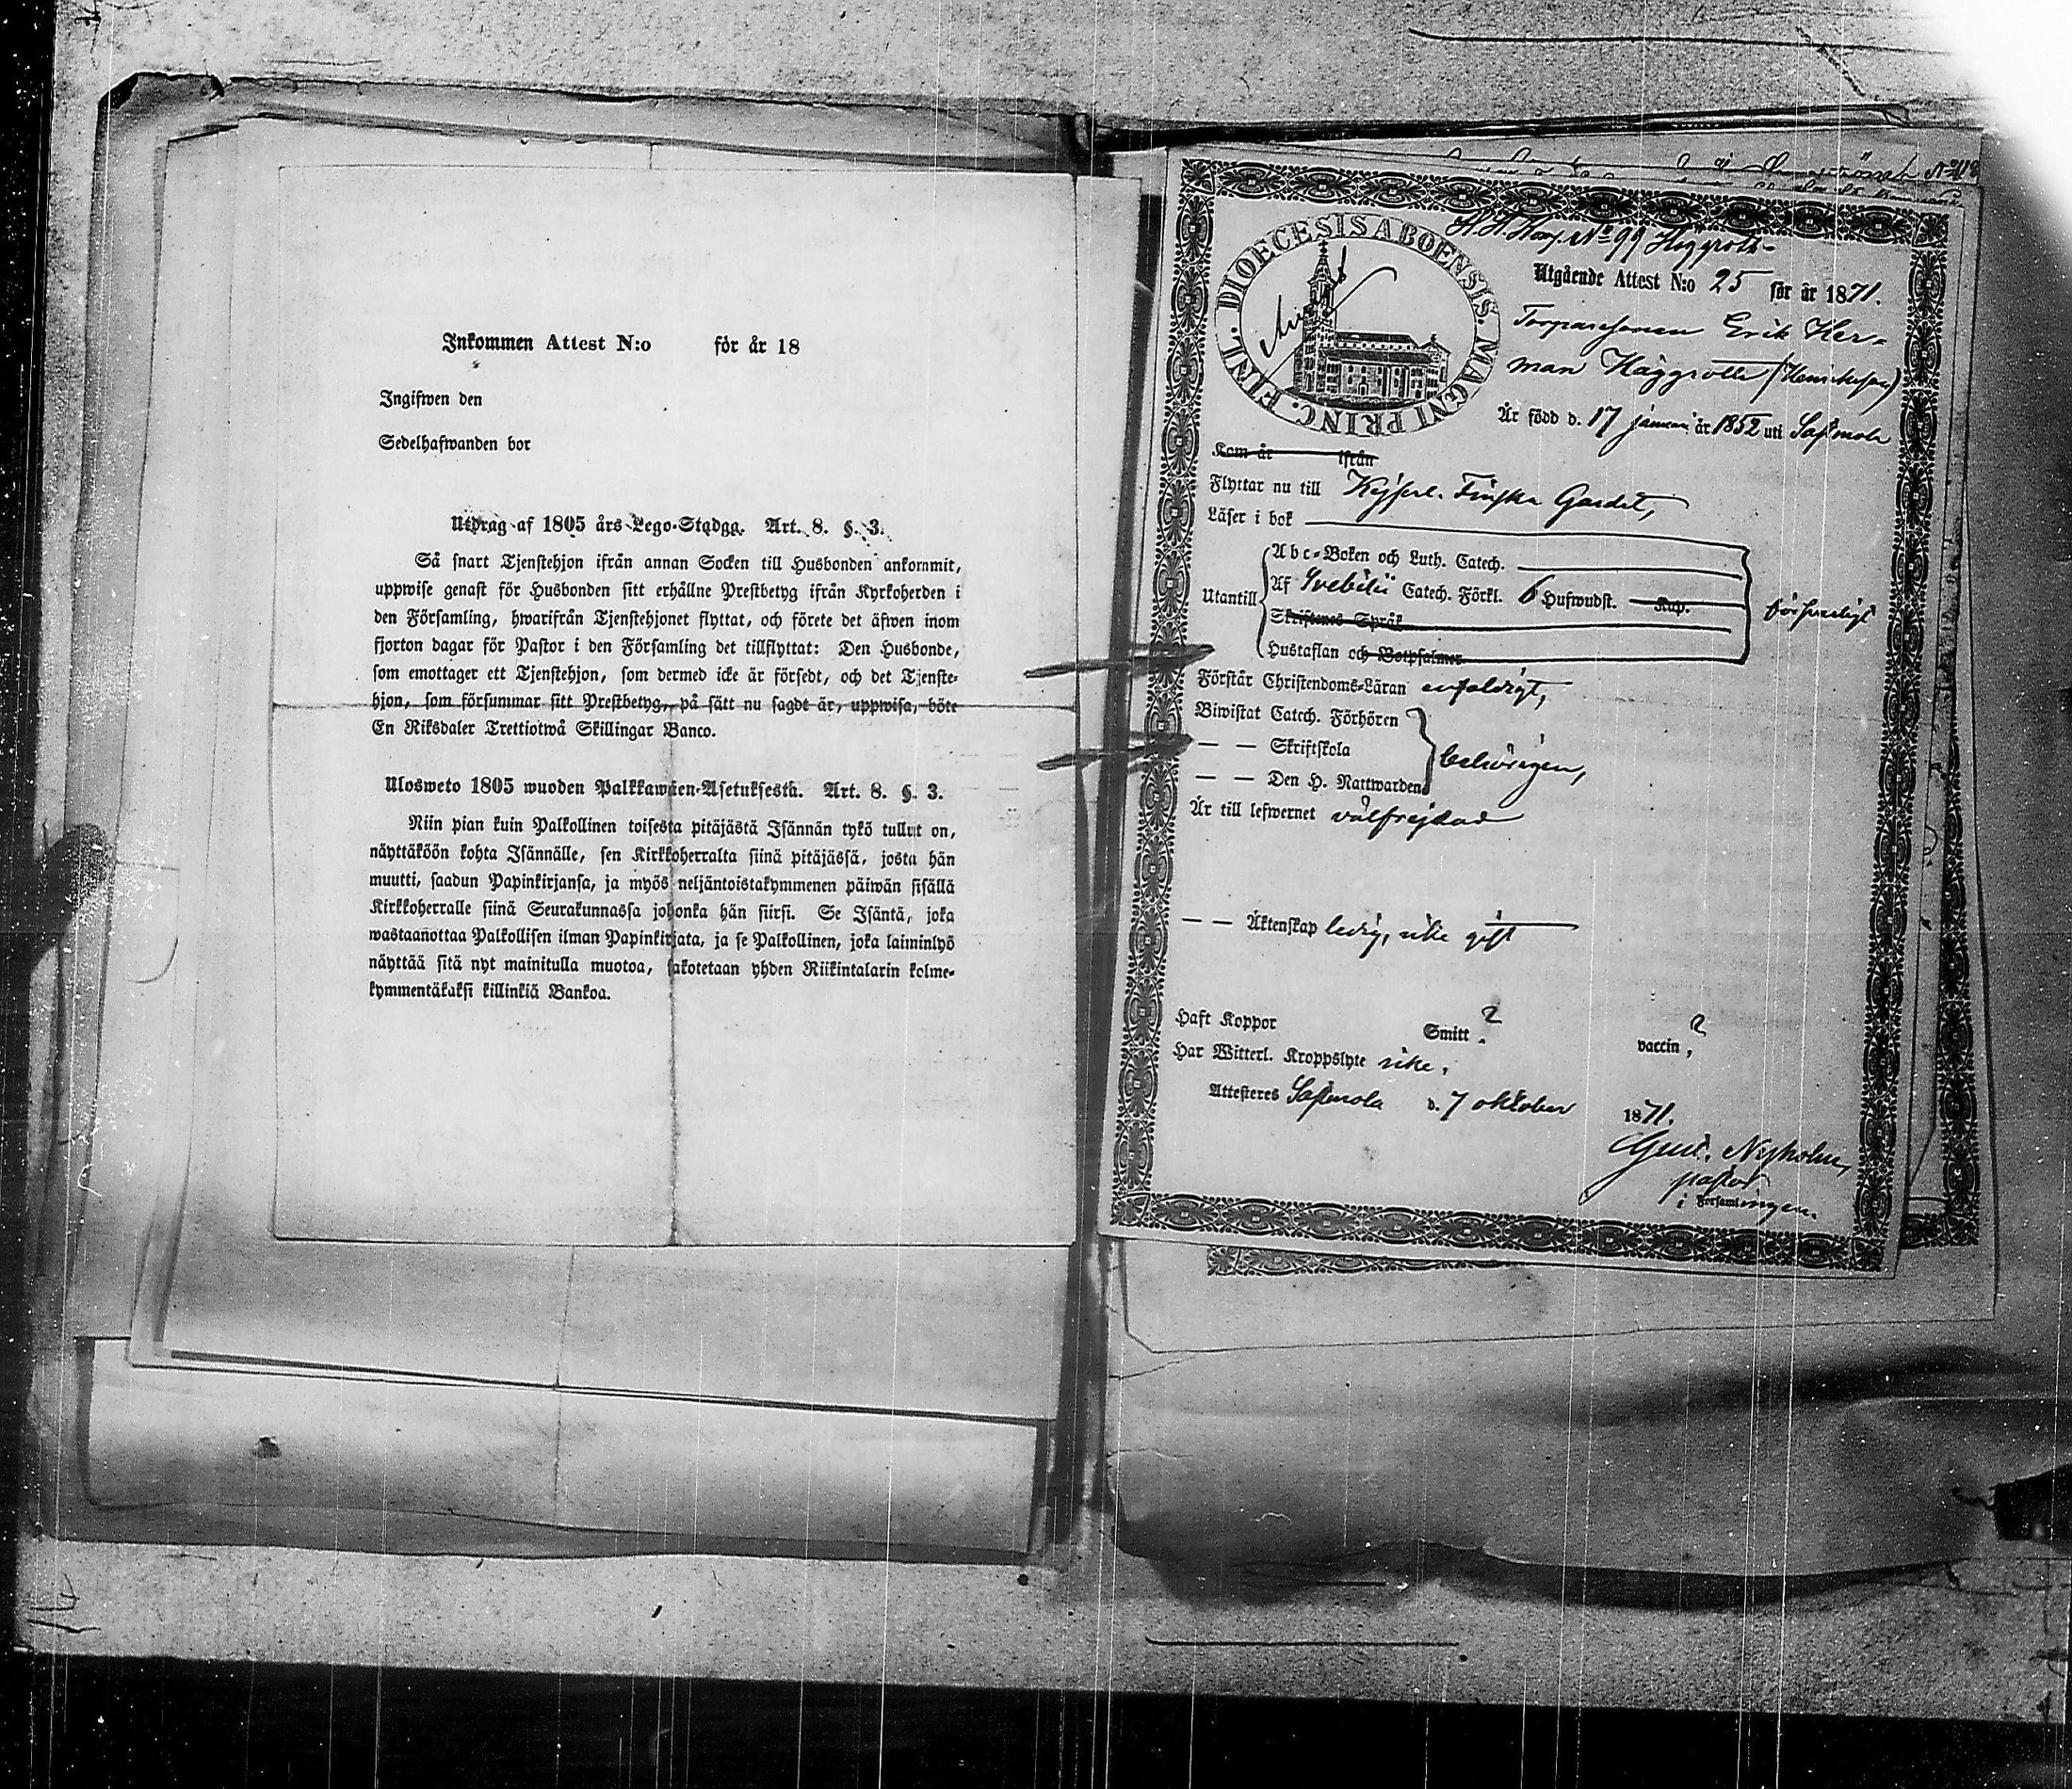 Inkommen Attest N:o för år 18
Ingifwen den
Sedelhafwanden bor
Utdrag af 1805 års Lego-Stadga. Art. 8. §. 3.
Så snart Tjenstehjon ifrån annan Socken till Husbonden ankommit,
uppwise genast för Husbonden sitt erhållne Prestbetyg ifrån Kyrkoherden i
den Församling, hwarifrån Tjenstehjonet flyttat, och förete det äfwen inom
fjorton dagar för Pastor i den Församling det tillflyttat: Den Husbonde,
som emottager ett Tjenstehjon, som dermed icke är försedt, och det Tjenste-
hjon, som försummar sitt Prestbetyg, på sätt nu sagdt är, uppwisa, böte
En Riksdaler Trettiotwå Skillingar Banco.
Ulosweto 1805 wuoden Palkkawäen-Asetuksesta. Art. 8. §. 3.
Niin pian kuin Palkollinen toisesta pitäjästä Isännän tykö tullut on,
näyttäköön kohta Isännälle, sen Kirkkoherralta siinä pitäjässä, josta hän
muutti, saadun Papinkirjansa, ja myös neljäntoistakymmenen päiwän sisällä
Kirkkoherralle siinä Seurakunnassa johonka hän siirsi. Se Isäntä, joka
wastaanottaa Palkollisen ilman Papinkirjata, ja se Palkollinen, joka laiminlyö
näyttää sitä nyt mainitulla muotoa, sakotetaan yhden Riikintalarin kolme-
kymmentäkaksi killinkiä Bankoa.
No 99 Häggroth
DIOECESIS ABOENSIS. MAGNI PRINC. FINL.
Utgående Attest N:o 25 för år 1871.
Torparesonen Erik Her-
man Häggroth (Henriksson)
Är född d. 17 januari år 1852 uti Sastmola
Kom år ifrån
Flyttar nu till Kejserl. Finska Gardet,
Läser i bok
Abc-Boken och Luth. Catech.
Utantill Af Svebelii Catech. Förkl. 6 Hufwudst. Kap. försvarligt
Skriftenes Språk
Hustaflan och Botpsalmer
Förstår Christendoms-Läran enfaldigt,
Biwistat Catech. Förhören
— — Skriftskola behörigen,
— — Den H. Nattwarden
Är till lefwernet välfrejdad
— — Äktenskap ledig, icke gift
Haft Koppor Smitt ? vaccin ?
Har Witterl. Kroppslyte icke.
Attesteres Sastmola d. 7 oktober 1871.
Gust. Nyholm,
pastor
i Församlingen.